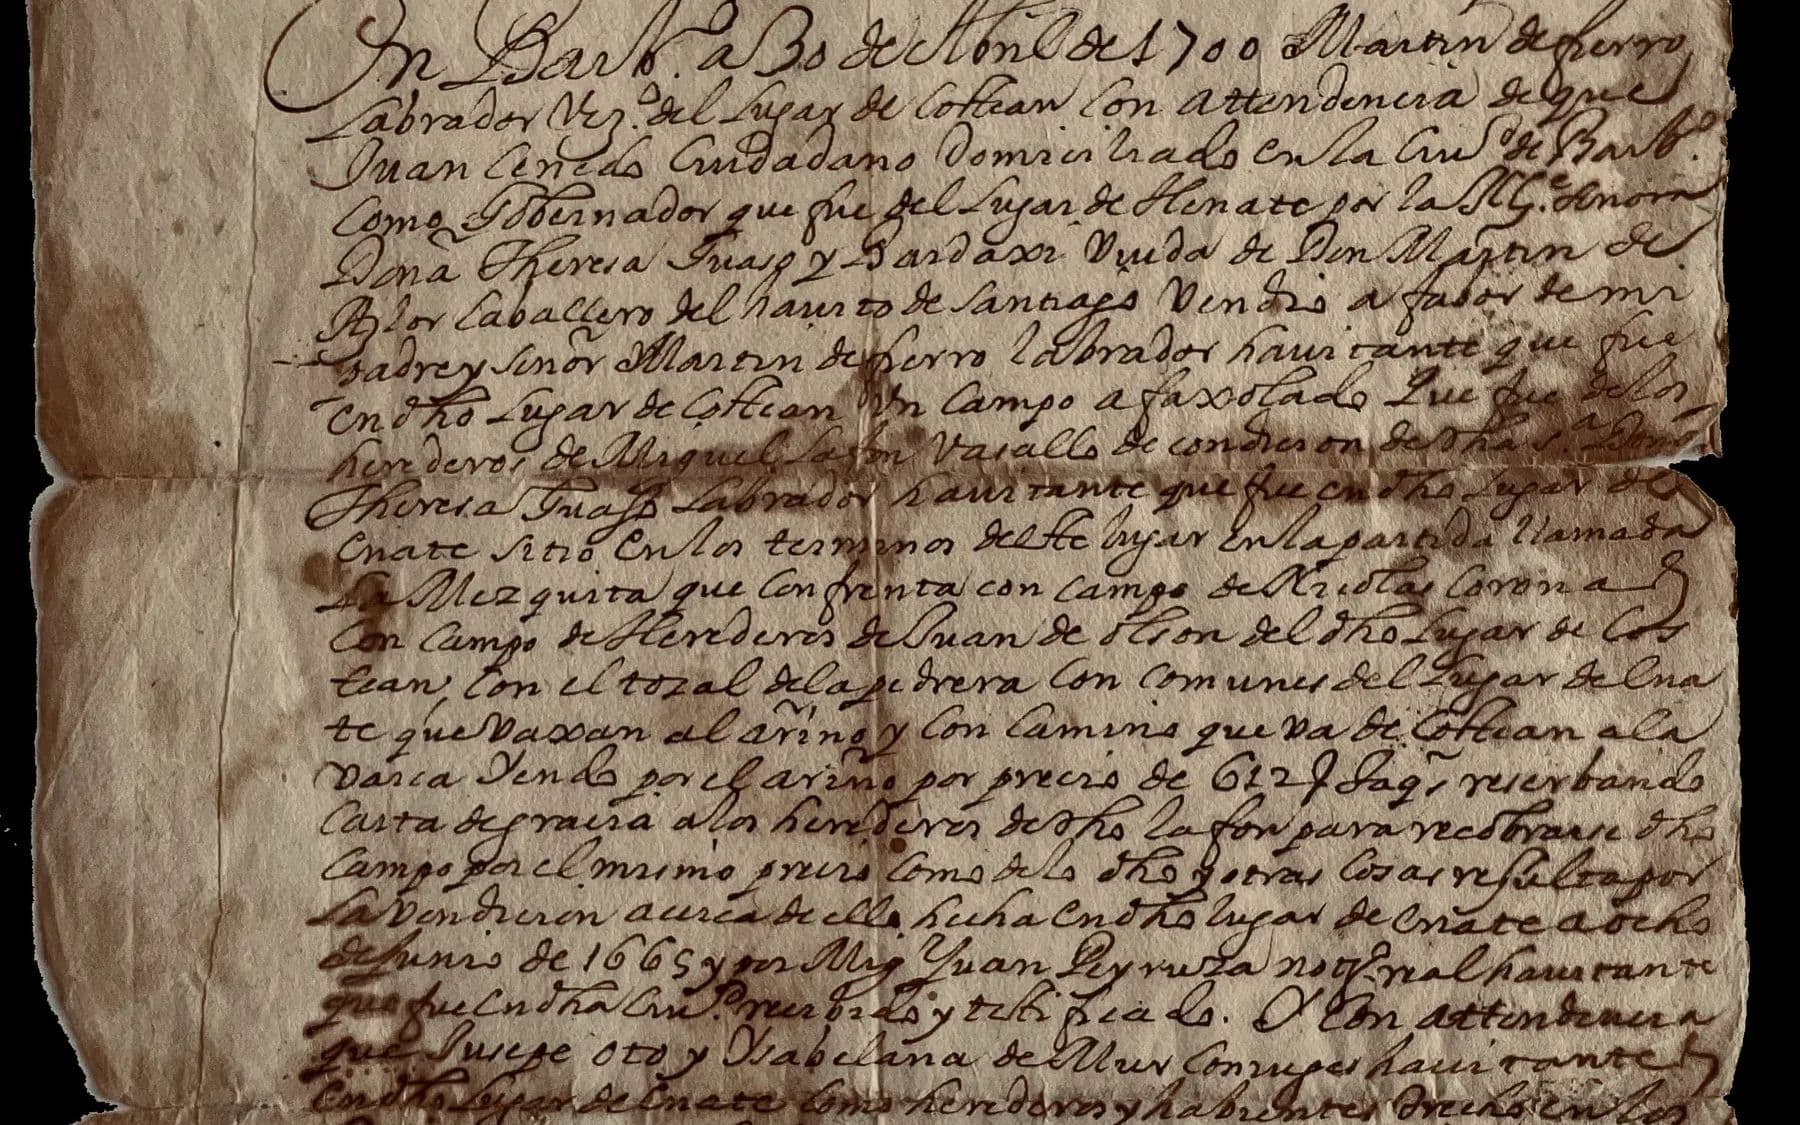 En Barb.º a 30 de Abril de 1700 Martin de fierro
Labrador Vez.º del Lugar de Costean con attendencia de que
Juan Cenedo Ciudadano Domiciliado en la Ciu.d de Barb.º
como Gobernador que fue del Lugar de Henate por la Mg.e señora
Doña Theresa y Bardaxi Viuda de Don Martin de
Azlor Caballero del hauito de Santiago Vendio a fabor de mi
padre y señor Martin de fierro labrador hauitante que fue
en dho Lugar de Costean Un Campo afaxolado Que fue de los
herederos de Miguel Lafon Vasallo de condicion de dha s.ª Dona
Theresa Labrador hauitante que fue en dho Lugar de
enate sitio en los terminos de este lugar en la partida llamada
La Mezquita que confrenta con campo de Nicolas Corona
con campo de Herederos de Juan de Olson del dho Lugar de Cos
tean, con el tozal de la pedrera con comunes del Lugar del na
te que vaxan al ariño y con camino que va de Costean a la
varca Yendo por el ariño por precio de 612 Jaqs reserbando
Carta de gracia a los herederos de dho lafon para recobrarse dho
campo por el mismo precio como de lo dho y otras cosas resulta por
la vendicion acerca de ello hecha en dho lugar de enate a ocho
de Junio de 1665 y por Mig Juan Peyruza not.º real hauitante
que fue en dha Ciu.d recibido y testificado. Y con attendencia
que Jusepe oto y Ysabelana de Mur Conyuges hauitantes
en dho Lugar de Enate como herederos y habientes drecho en los